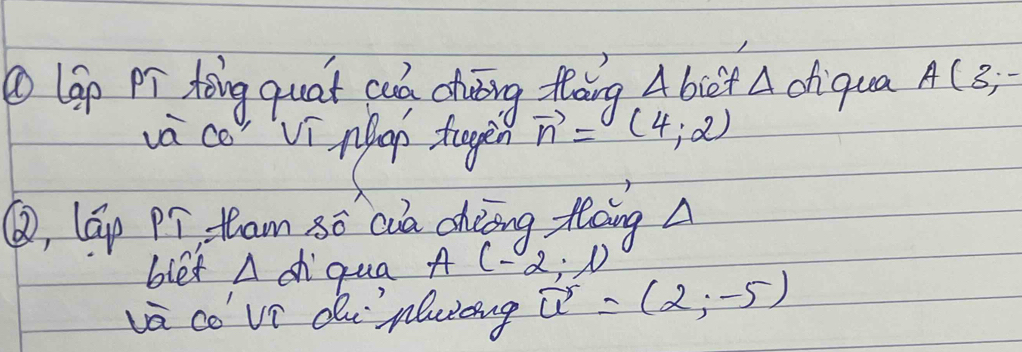 ① lập PT tổng quát của đường thẳng Δ biết Δ đi qua A (3; -
và có VT pháp tuyến n⃗ = (4; 2)
②, lập PT tham số của đường thẳng Δ
biết Δ đi qua A (-2; 1)
và có VT chỉ phương u⃗ = (2; -5)